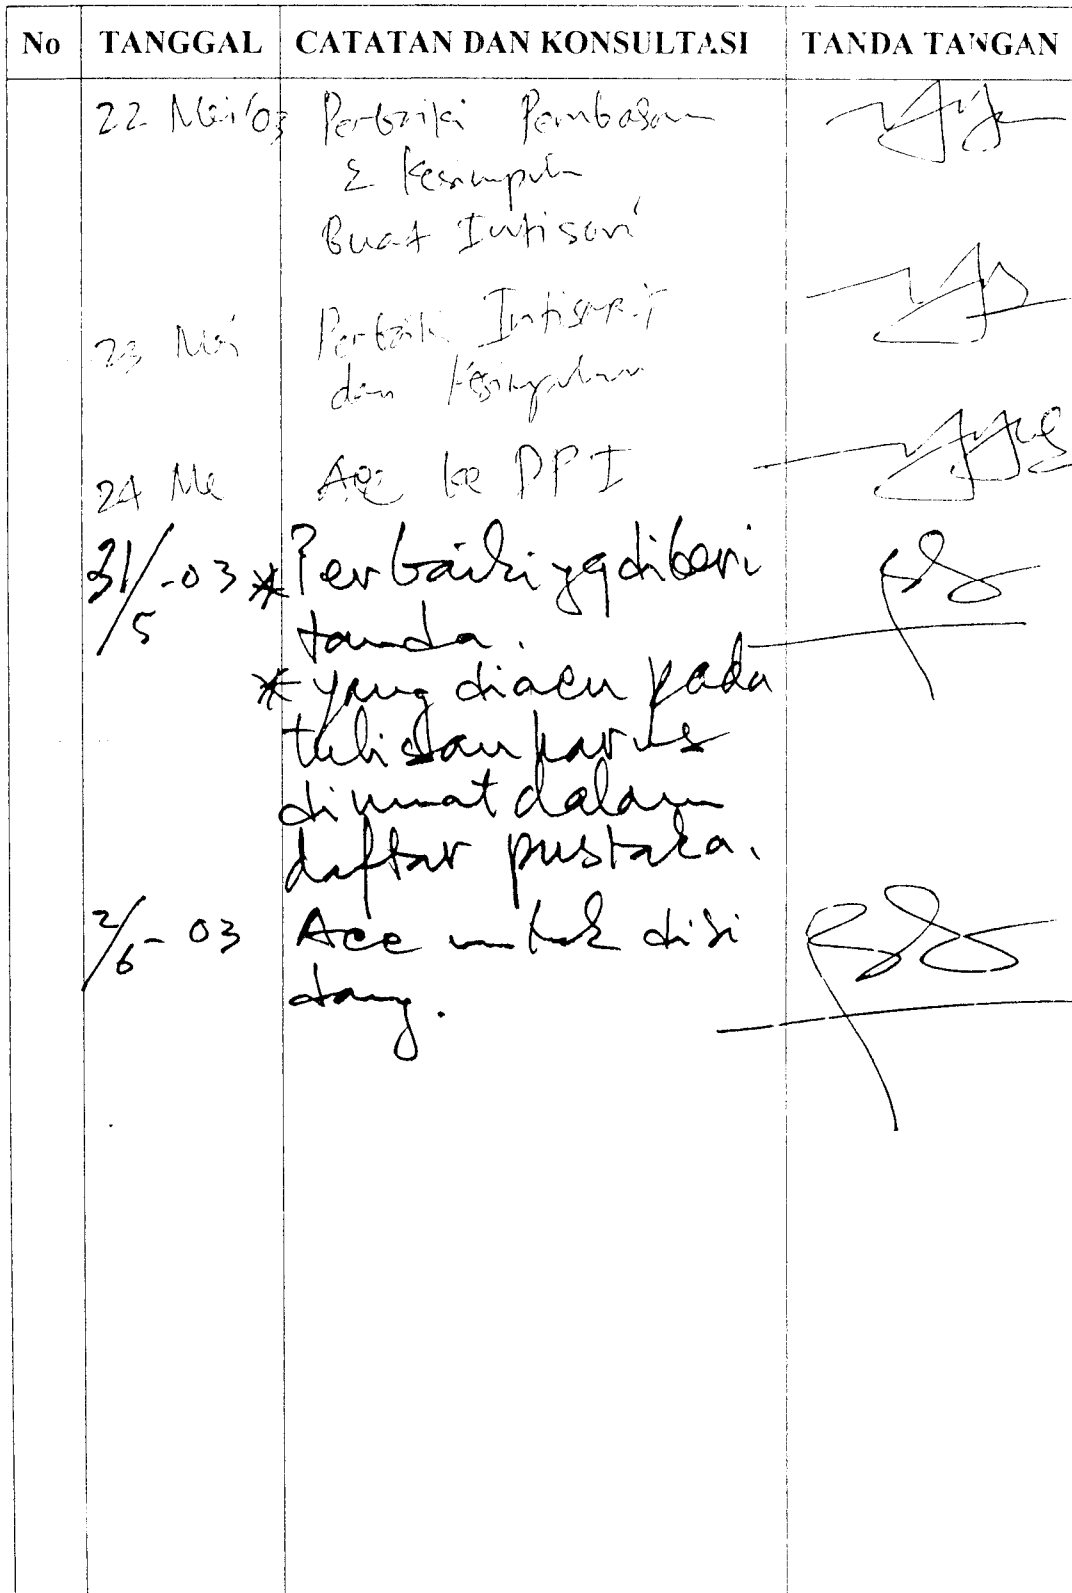 No TANGGAL CATATAN DAN KONSULTASI TANDA TANGAN
22 Mei '03 Perbaiki Pembahasan
& Kesimpulan
Buat Intisari
23 Mei Perbaiki Intisari
dan Kesimpulan
24 Mei Acc ke DPI
31/5-03 * Perbaiki yg diberi
tanda.
* yang diacu pada
tulisan harus
dimuat dalam
daftar pustaka.
2/6-03 Acc untuk disi
dang.